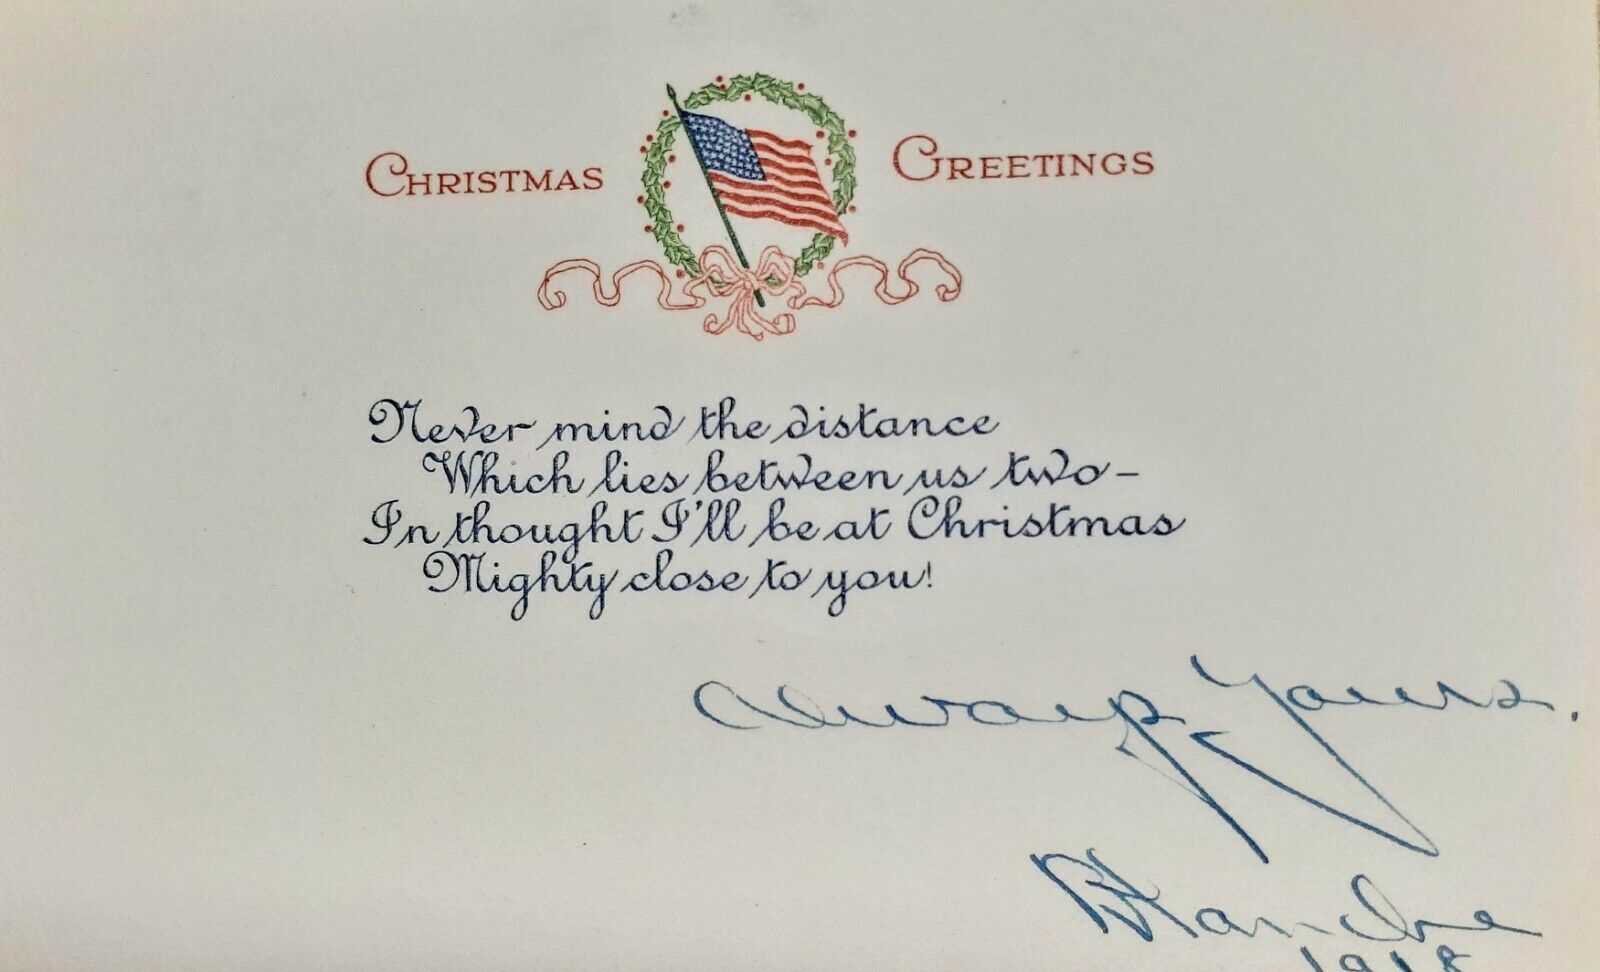 CHRISTMAS GREETINGS
Never mind the distance
Which lies between us two-
In thought I'll be at Christmas
Mighty close to you!
Always Yours.
Blanche
1918